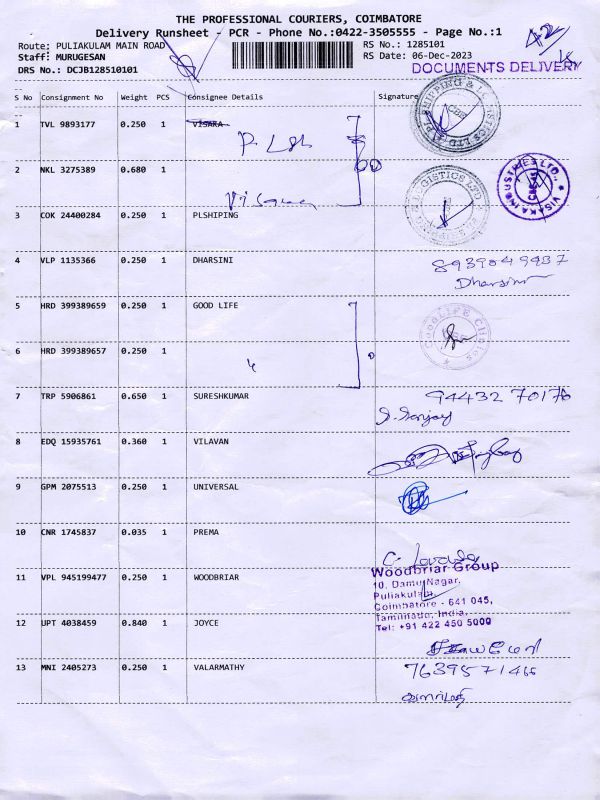 THE PROFESSIONAL COURIERS, COIMBATORE
Delivery Runsheet - PCR - Phone No.:0422-3505555 - Page No.:1
Route: PULIAKULAM MAIN ROAD
RS No.: 1285101
Staff: MURUGESAN
RS Date: 06-Dec-2023
DRS No.: DCJB128510101
DOCUMENTS DELIVERY
42
S No Consignment No Weight PCS Consignee Details Signature
1 TVL 9893177 0.250 1 VISAKA
2 NKL 3275389 0.680 1
3 COK 24400284 0.250 1 PLSHIPING
VISAKA INDUSTRIES LTD.,
4 VLP 1135366 0.250 1 DHARSINI
8939049437
Dharsini
5 HRD 399389659 0.250 1 GOOD LIFE
6 HRD 399389657 0.250 1
7 TRP 5906861 0.650 1 SURESHKUMAR
94432 70176
S. Sanjay
8 EDQ 15935761 0.360 1 VILAVAN
9 GPM 2075513 0.250 1 UNIVERSAL
10 CNR 1745837 0.035 1 PREMA
11 VPL 945199477 0.250 1 WOODBRIAR
Woodbriar Group
10, Damu Nagar,
Puliakulam,
Coimbatore - 641 045,
Tamilnadu, India.
Tel: +91 422 450 5000
12 UPT 4038459 0.840 1 JOYCE
13 MNI 2405273 0.250 1 VALARMATHY
7639571466